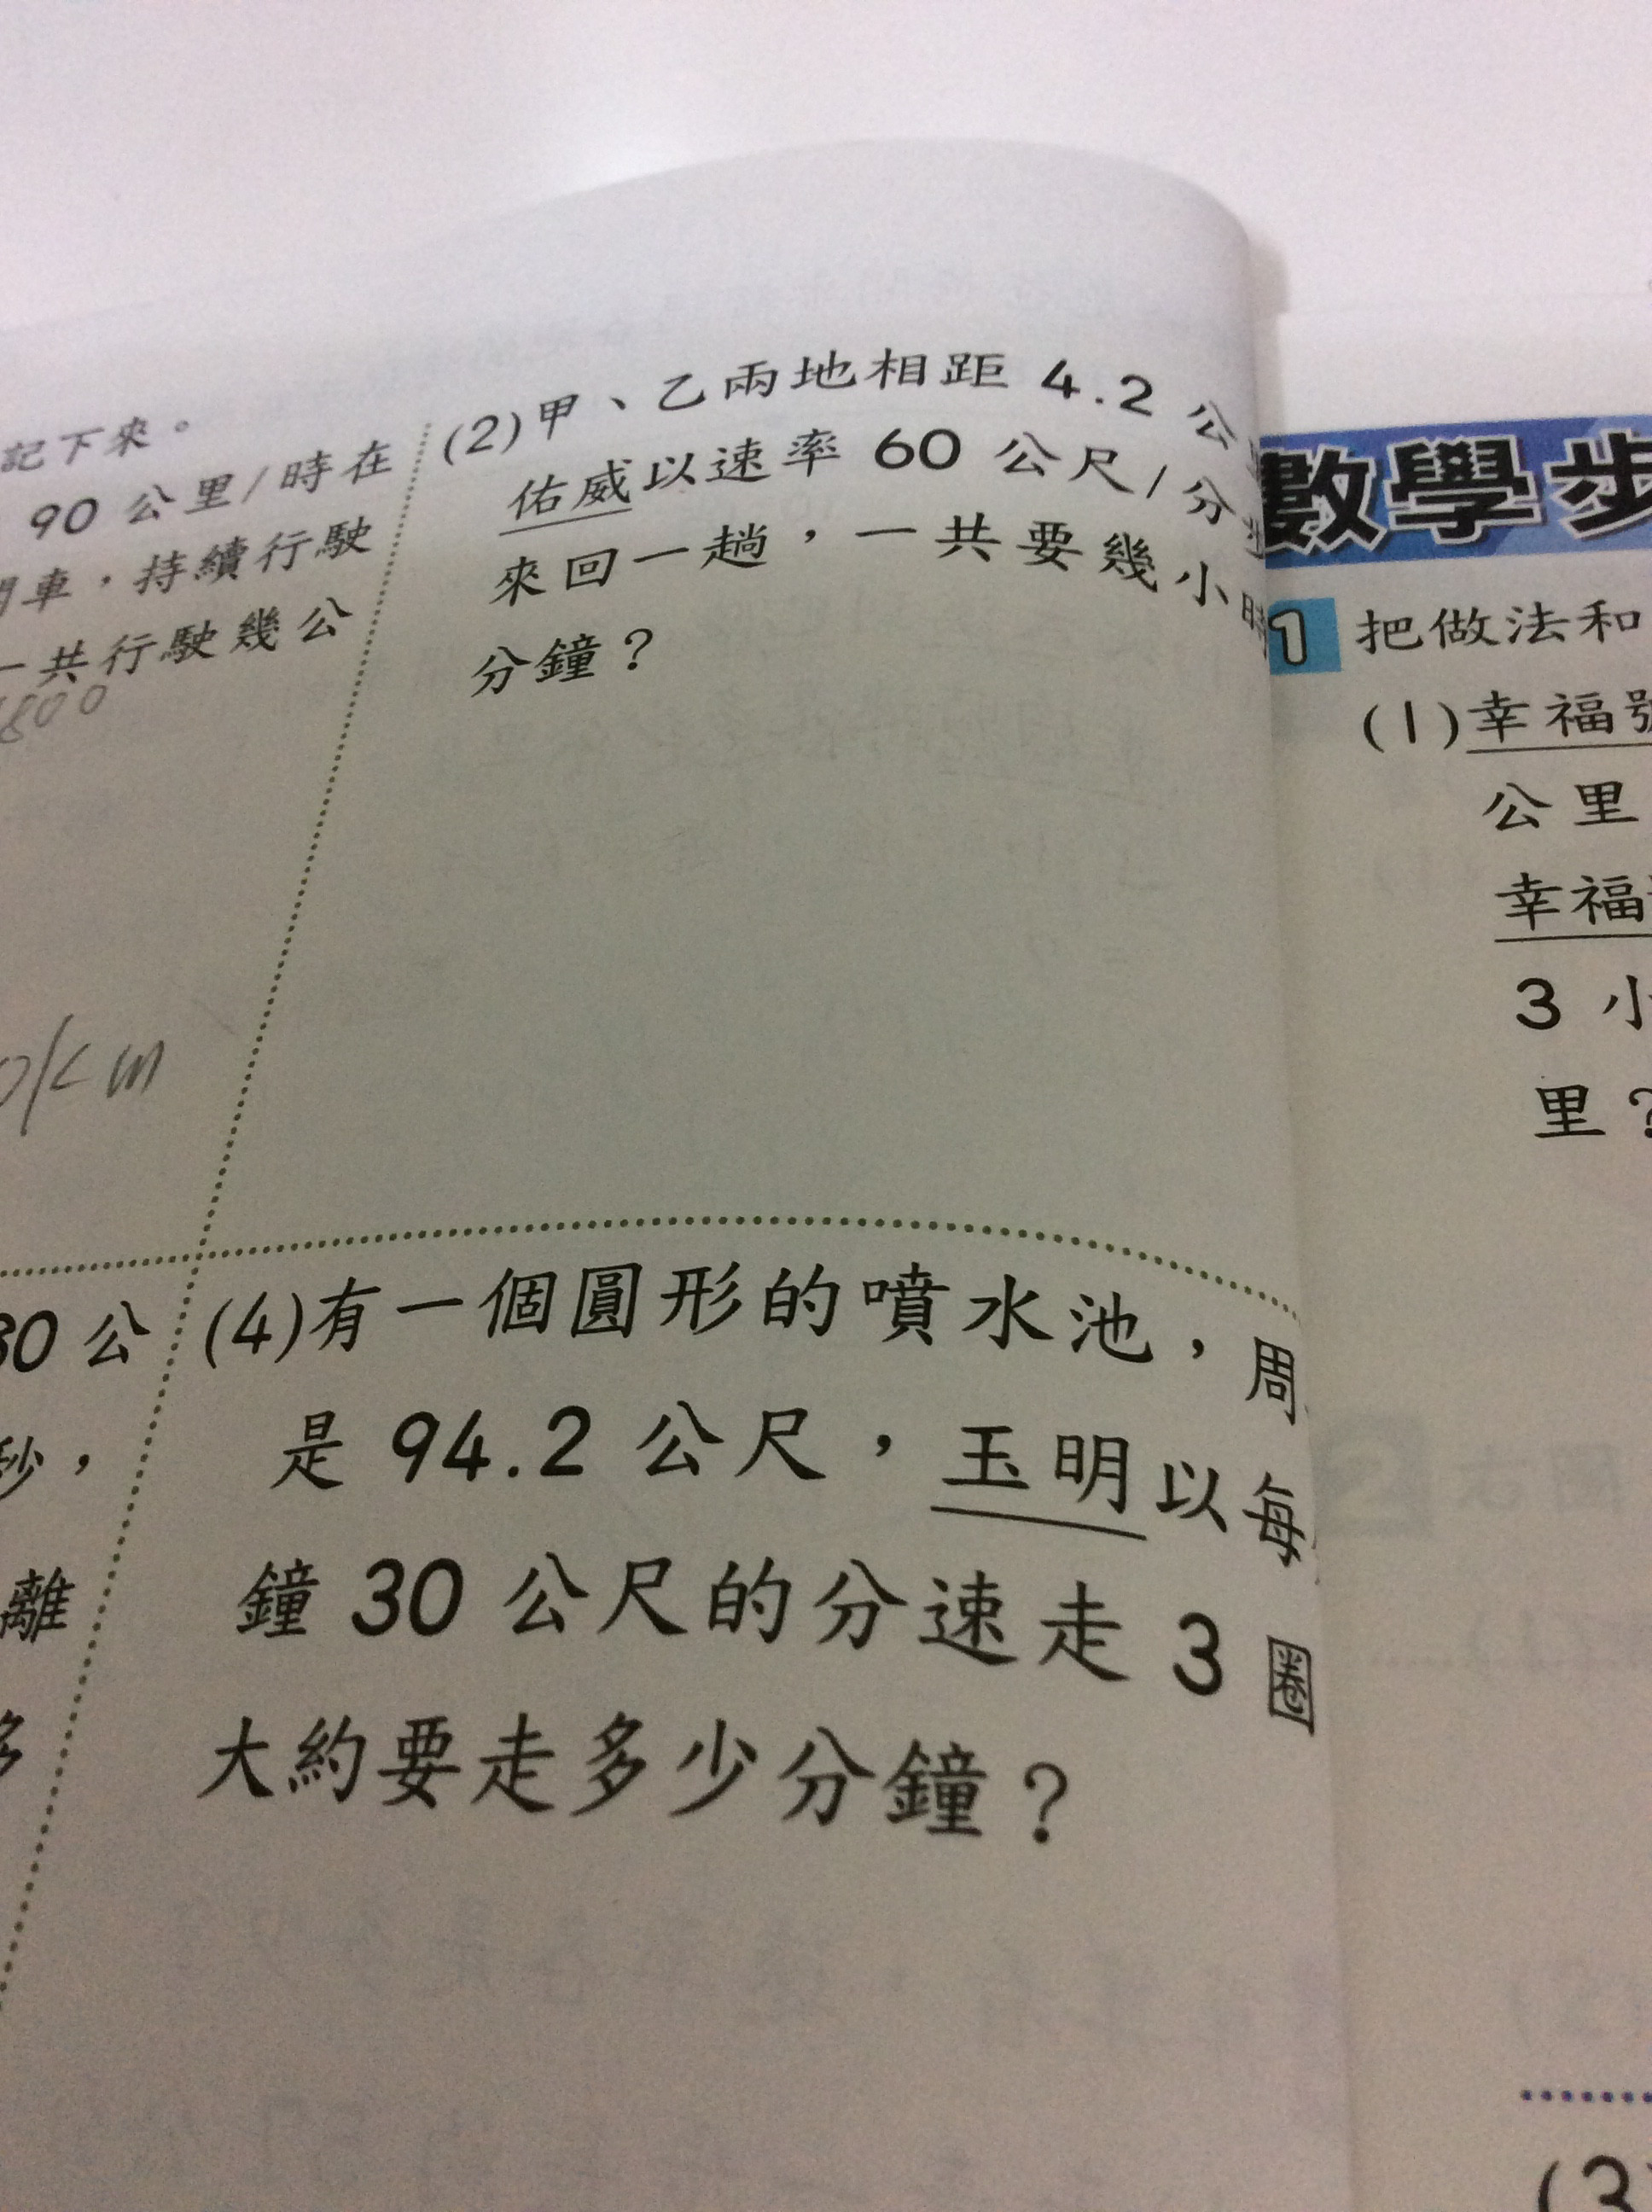 記下來。
90 公里/時在
車，持續行駛
一共行駛幾公
800
km
(2)甲、乙兩地相距 4.2 公
佑威以速率 60 公尺/分
來回一趟，一共要幾小時
分鐘？
30 公
秒，
離
多
(4)有一個圓形的噴水池，周
是 94.2 公尺，玉明以每
鐘 30 公尺的分速走 3 圈
大約要走多少分鐘？
數學步
1 把做法和
(1)幸福號
公里
幸福
3 小
里？
(3)